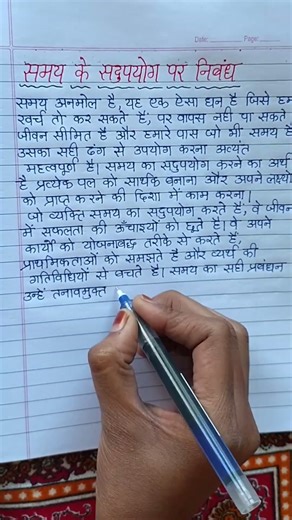 Date: Page:
समय के सदुपयोग पर निबंध
समय अनमोल है, यह एक ऐसा धन है जिसे हम
खर्च तो कर सकते हैं, पर वापस नहीं पा सकते
जीवन सीमित है और हमारे पास जो भी समय है
उसका सही ढंग से उपयोग करना अत्यंत
महत्वपूर्ण है। समय का सदुपयोग करने का अर्थ
है प्रत्येक पल को सार्थक बनाना और अपने लक्ष्यों
को प्राप्त करने की दिशा में काम करना।
जो व्यक्ति समय का सदुपयोग करते हैं, वे जीवन
में सफलता की ऊँचाइयों को छूते हैं। वे अपने
कार्यों को योजनाबद्ध तरीके से करते हैं,
प्राथमिकताओं को समझते हैं और व्यर्थ की
गतिविधियों से बचते हैं। समय का सही प्रबंधन
उन्हें तनावमुक्त